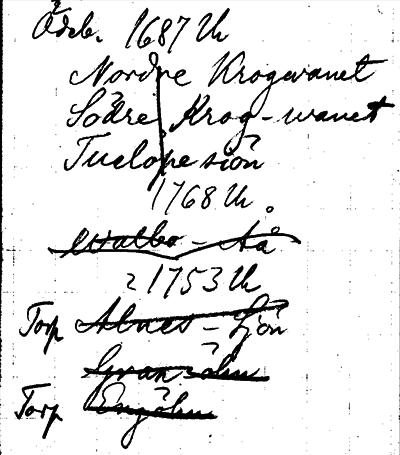 Ödeb. 1687 Uh
Nordre Krogwanet
Södre Krog-wanet
Tuelope siön
1768 Uh.
Walbo-Åå
2 1753 Uh
Torp Alnes-Sjön
Gran-öhn
Torp Engöhn